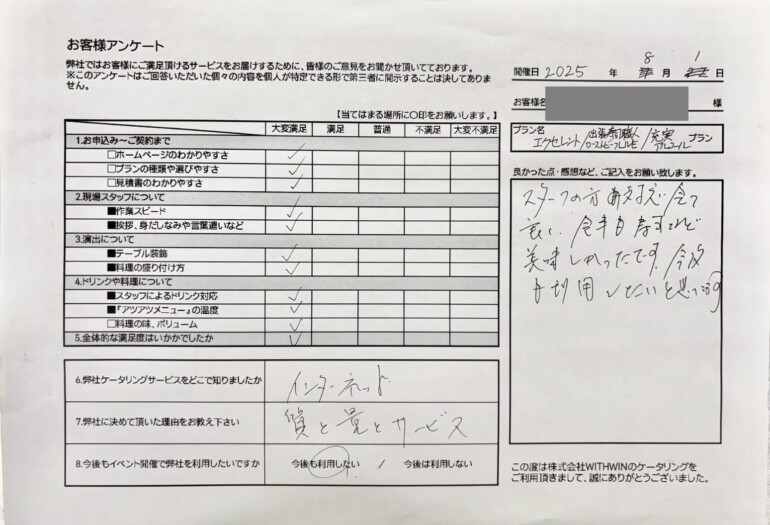 お客様アンケート
弊社ではお客様にご満足頂けるサービスをお届けするために、皆様のご意見をお聞かせ頂いております。
※このアンケートはご回答いただいた個々の内容を個人が特定できる形で第三者に開示することは決してありません。
【当てはまる場所に○印をお願いします。】
大変満足 満足 普通 不満足 大変不満足
1.お申込み～ご契約まで ✓
□ホームページのわかりやすさ ✓
□プランの種類や選びやすさ ✓
□見積書のわかりやすさ ✓
2.現場スタッフについて
■作業スピード ✓
■挨拶、身だしなみや言葉遣いなど ✓
3.演出について
■テーブル装飾 ✓
■料理の盛り付け方 ✓
4.ドリンクや料理について
■スタッフによるドリンク対応 ✓
■『アツアツメニュー』の温度 ✓
□料理の味、ボリューム ✓
5.全体的な満足度はいかかでしたか ✓
6.弊社ケータリングサービスをどこで知りましたか インターネット
7.弊社に決めて頂いた理由をお教え下さい 質と量とサービス
8.今後もイベント開催で弊社を利用したいですか 今後も利用したい / 今後は利用しない
開催日 2025 年 8 月 1 日
お客様名 様
プラン名
エクセレント/出張寿司職人 ローストビーフLIVE/充実アルコール プラン
良かった点・感想など、ご記入をお願い致します。
スタッフの方 全て
良く、食事も寿司など
美味しかったです。今後
も利用したいと思ってます
この度は株式会社WITHWINのケータリングを
ご利用頂きまして、誠にありがとうございました。